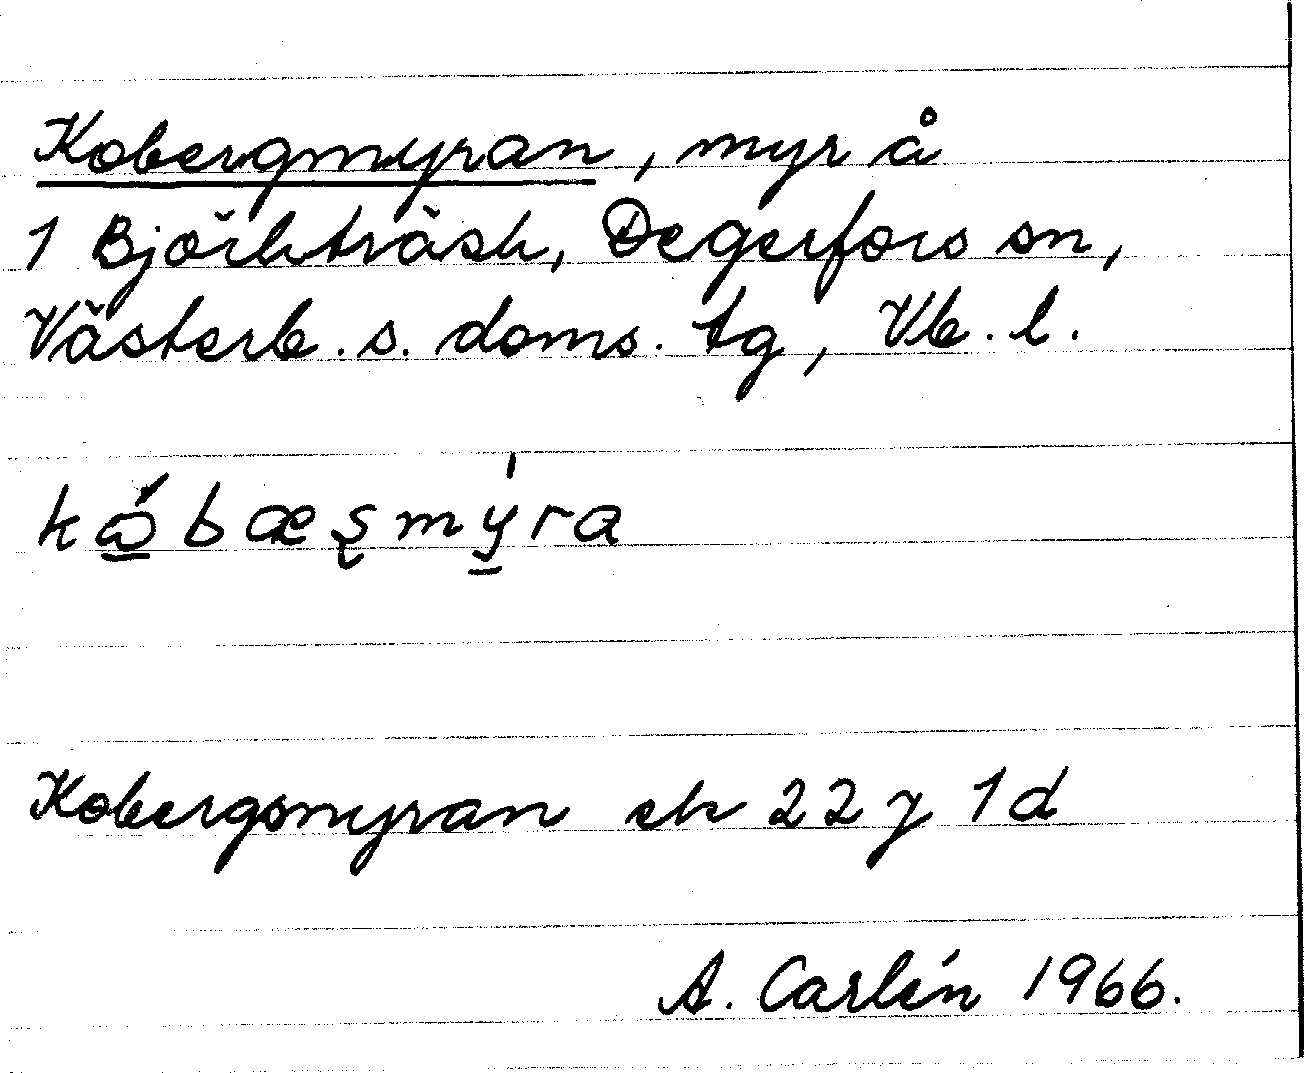 Kobergmyran, myr å
1 Björkträsk, Degerfors sn,
Västerb. s. doms. tg, Vb. l.
Kobergsmyran ek 22 J 1d
A. Carlén 1966.